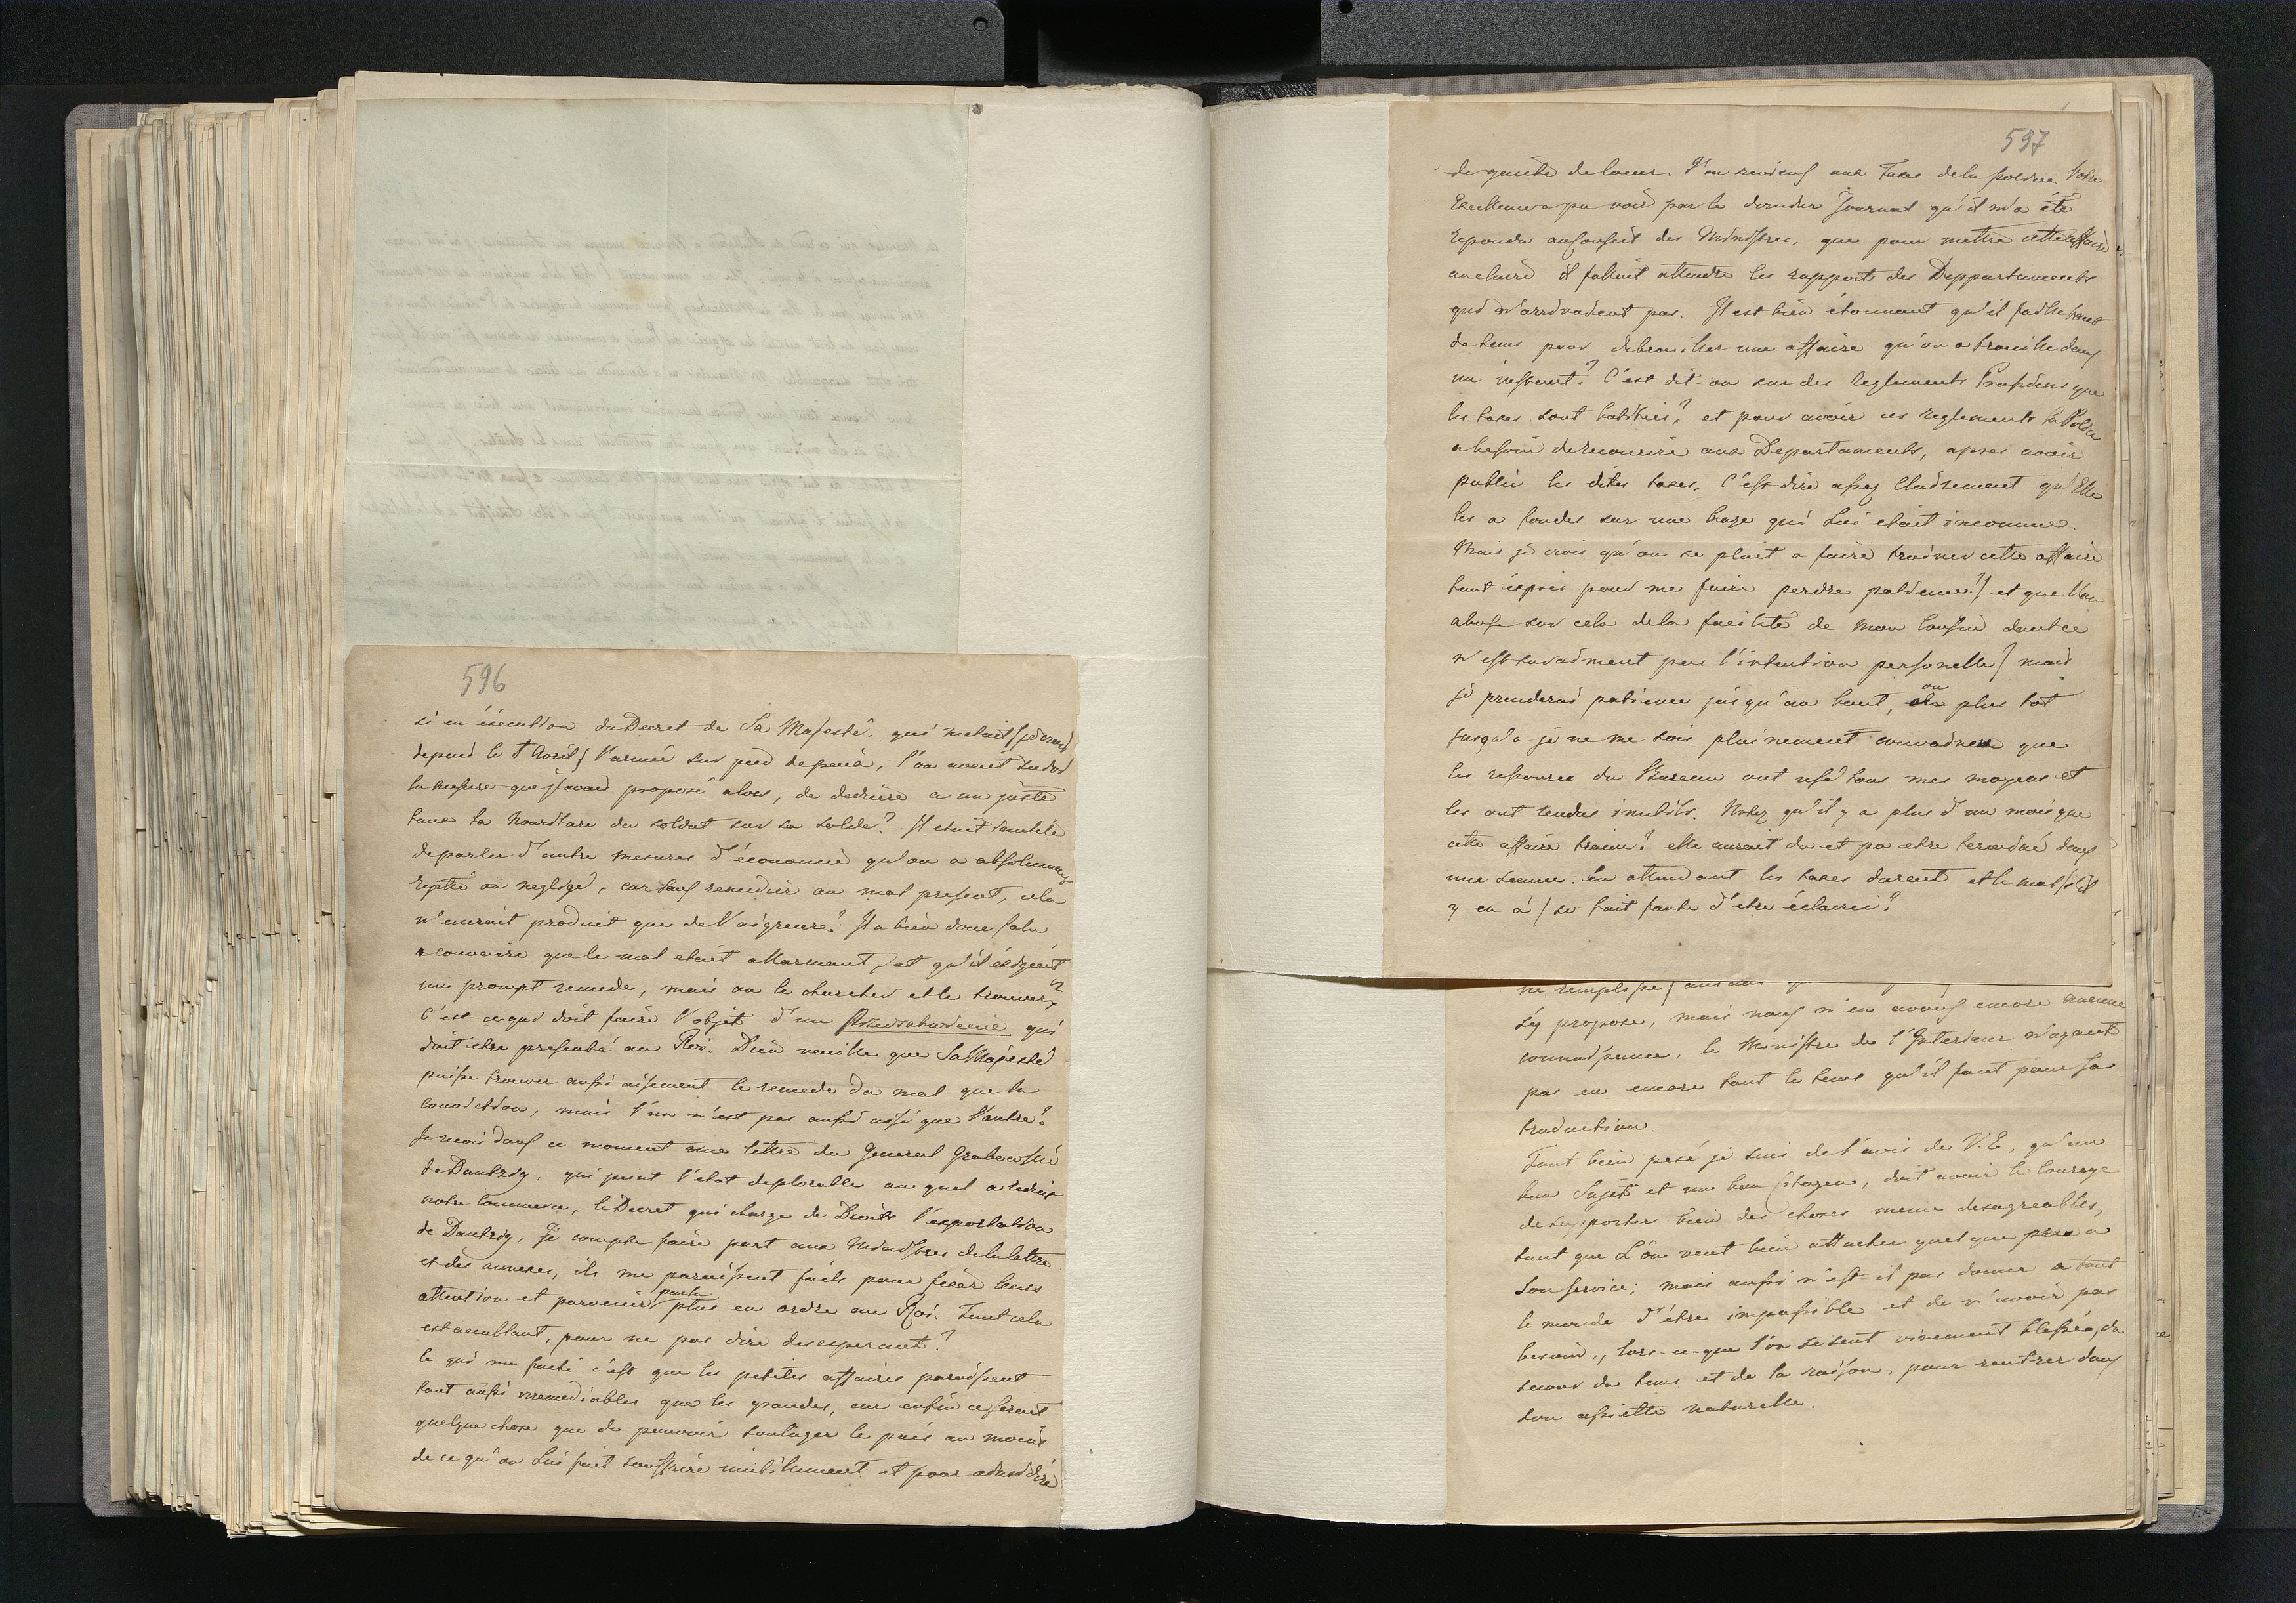 596
si en éxecution du Decret de Sa Majesté. qui metait /je crois
depuis le 1 Avril/ l'armée sur pied de paix, l'on avait suivi
la mesure que j'avais proposé alors, de deduire a un juste
taux la nourriture du soldat sur sa solde? Il etait inutile
de parler d'autre mesures d'économie qu'on a absolument
rejetté ou negligé, car sans remedier au mal present, cela
n'aurait produit que de l'aigreure? Il a bien donc falu
convenire que le mal etait allarmant, et qu'il éxigeait
un prompt remede, mais ou le chercher et le trouver?
C'est-ce qui doit faire l'objet d'un qui
doit etre presenté au Roi. Dieu veuille que Sa Majesté
puisse trouver aussi aisement le remede du mal que la
conviction, mais l'un n'est pas aussi aisé que l'autre?
Je reçois dans ce moment une lettre du General Grabowski
de Dantzig, qui peint l'etat deplorable au quel a reduit
notre Commerce, le Decret qui charge de Droits l'exportation
de Dantzig, je compte faire part aux Ministres de la lettre
et des annexes, ils me paraissent faits pour fixer leurs
attention et parvenir par la plus en ordre au Roi. Tout cela
est accablant, pour ne pas dire desesperant?
Ce qui me fache c'est que les petites affaires paraissent
tout aussi irremediables que les grandes, car enfin ce serait
quelque chose que de pouvoir soulager le païs au moins
de ce qu'on Lui fait souffrire inutilement et pour ainsi dire
597
de gaieté de Coeur. J'en reviens aux Taxes de la police. Votre
Excellence a pu voir par le dernier Journal qu'il m'a été
repondu au Conseil des Ministres, que pour mettre cette affaire
au claire il fallait attendre les rapports des Deppartaments
qui n'arrivaient pas. Il est bien étonnant qu'il faille tant
de tems pour debrouiller une affaire qu'on a brouillé dans
un instant? C'est dit-on sur des reglements Prussiens que
les taxes sont batities? et pour avoir ces reglements la Police
a besoin de recourire aux Departaments, apres avoir
publié les dites taxes. C'est dire assez Clairement qu'Elle
les a fondés sur une baze qui Lui etait inconnue.
Mais je crois qu'on se plait a faire trainer cette affaire
tout éxprés pour me faire perdre patience?/ et que l'on
abuse sur cela de la facilité de mon Cousin dont ce
n'est suremment pas l'intention personelle/ mais
je prenderai patience jusqu'au bout, ou plus tot
jusqu'a je ne me sois pleinement convaincu que
les ressources du Bureau ont usé tous mes moyens et
les ont rendus inutils. Notez qu'il y a plus d'un mois que
cette affaire traine? elle aurait du et pu etre terminé dans
une semaine: En attendant les taxes durent et le mal /s'il
y en a/ se fait faute d'etre éclairci?
s'y propose, mais nous n'en avons encore aucune
connaissance, le Ministre de l'Interieur n'ayant
pas eu encore tout le tems qu'il faut pour sa
traduction.
Tout bien pesé je suis de l'avis de V.E, qu'un
bon Sujet et un bon Citoyen, doit avoir le courage
de supporter bien des choses meme desagreables,
tant que L'on veut bien attacher quelque prix a
Son Service; mais aussi n'est-il pas donné a tout
le monde d'être impassible et de n'avoir pas
besoin, lors-ce-que l'on se sent vivement blessé, du
secour du tems et de la raison, pour rentrer dans
son assiette naturelle.